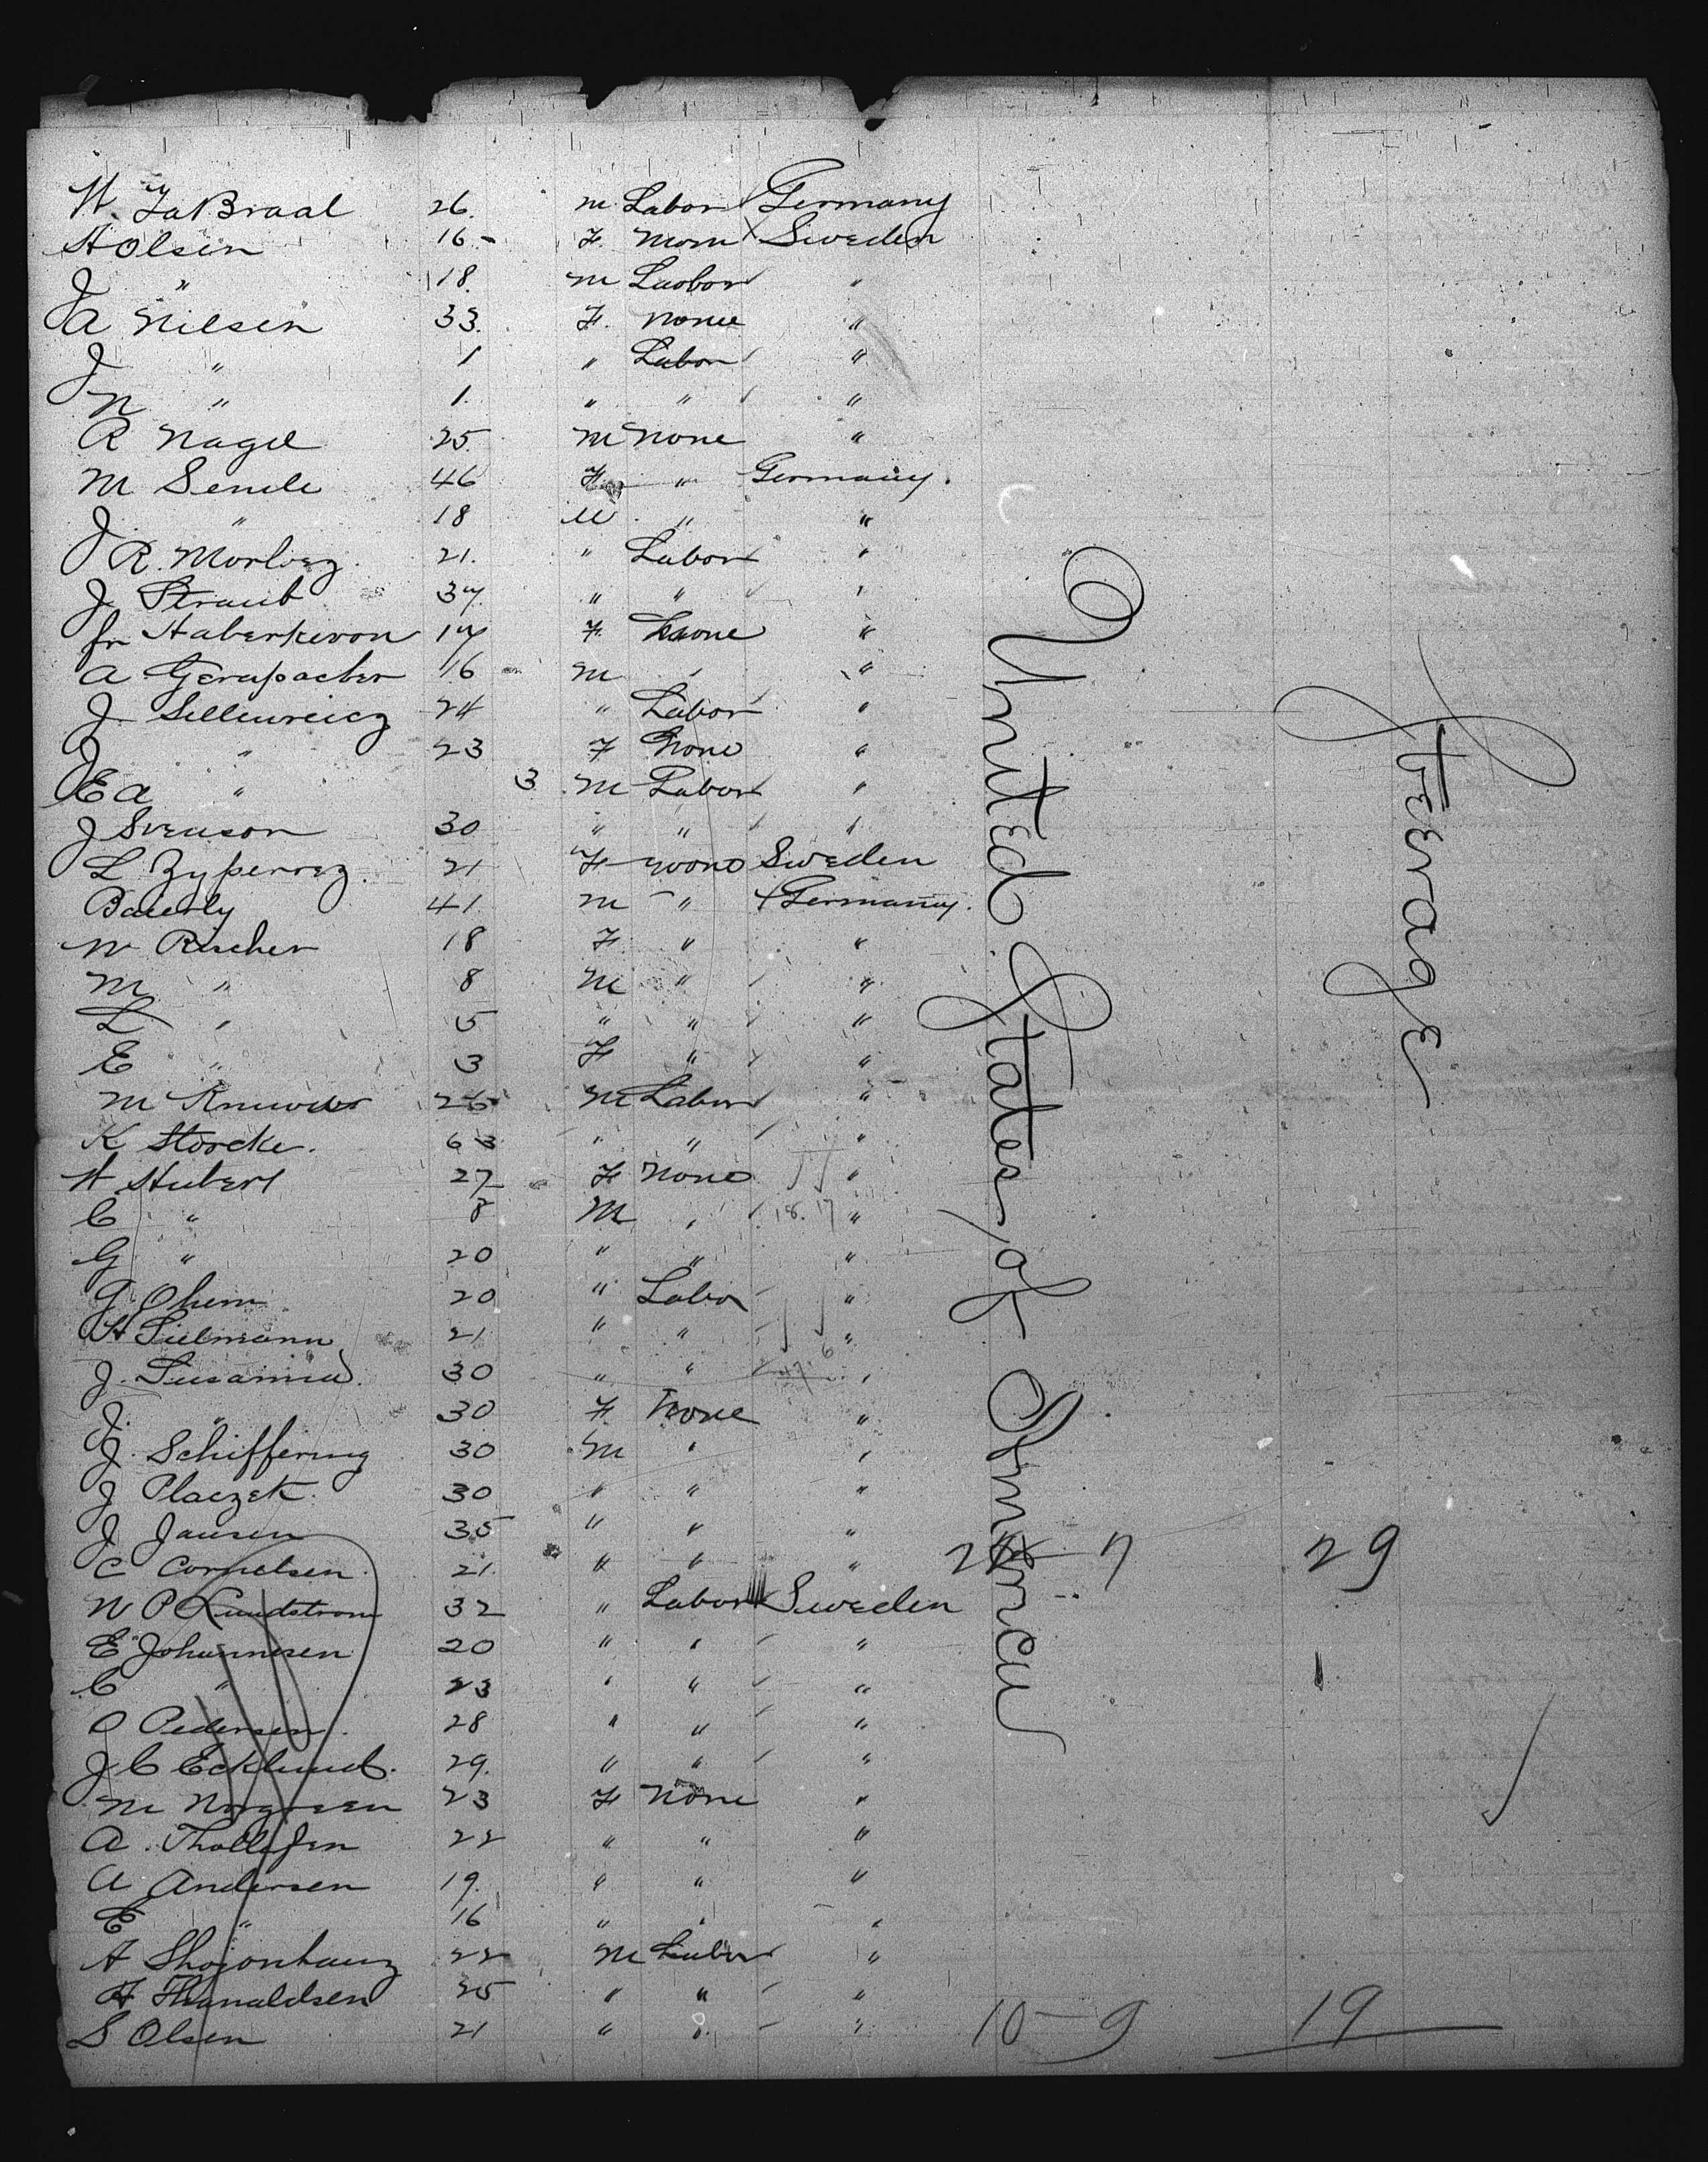 H. LaBraal 26. m. Labor Germany
H Olsen 16 - F. None Sweden
J " 18. m Laobor "
A Nilsen 33. F. None "
J " 1 " Labor "
N " 1. " " "
R Nagel 25. M None "
M Semle 46 F. " Germany.
J " 18 M " "
R. Morloez 21. " Labor "
J Straub 37. " " "
fr Haberkevon 17 F. None "
A 16 m " "
J. Sellewreicz 24 " Labor "
J " 23 F None "
E a " 3 M Labor "
J Svenson 30 " " "
L Zyperrez. 21 F None Sweden
Bauerly 41 m " Germany.
W Rischer 18 F. " "
M " 8 M " "
L " 5 " " "
E " 3 F " "
M 25 M Labor "
K Storcke. 63 " " "
H Hubert 27 F None "
C " 8 M " 18.17 "
G " 20 " " "
G. Ohem 20 " Labor "
H Sielmann 21 " " "
J. 30 " " 47.6 "
J. " 30 F. None "
J. Schiffering 30 M " "
J Placzek 30 " " "
J Jansen 35 " " "
C Cornelsen 21. " " " 7 29
N P Lundstrom 32 " Labor Sweden
E Johannesen 20 " " "
C " 23 " " "
O Pedersen. 28 " " "
J C Ecklund. 29. " " "
M Norgreen 23 F None "
A. Thollefsen 22 " " "
A Andersen 19. " " "
E " 16 " " "
A 22 M Labor "
A Thanaldsen 25 " " "
S Olsen 21 " " " 10 - 9 19
United States of America
Steerage